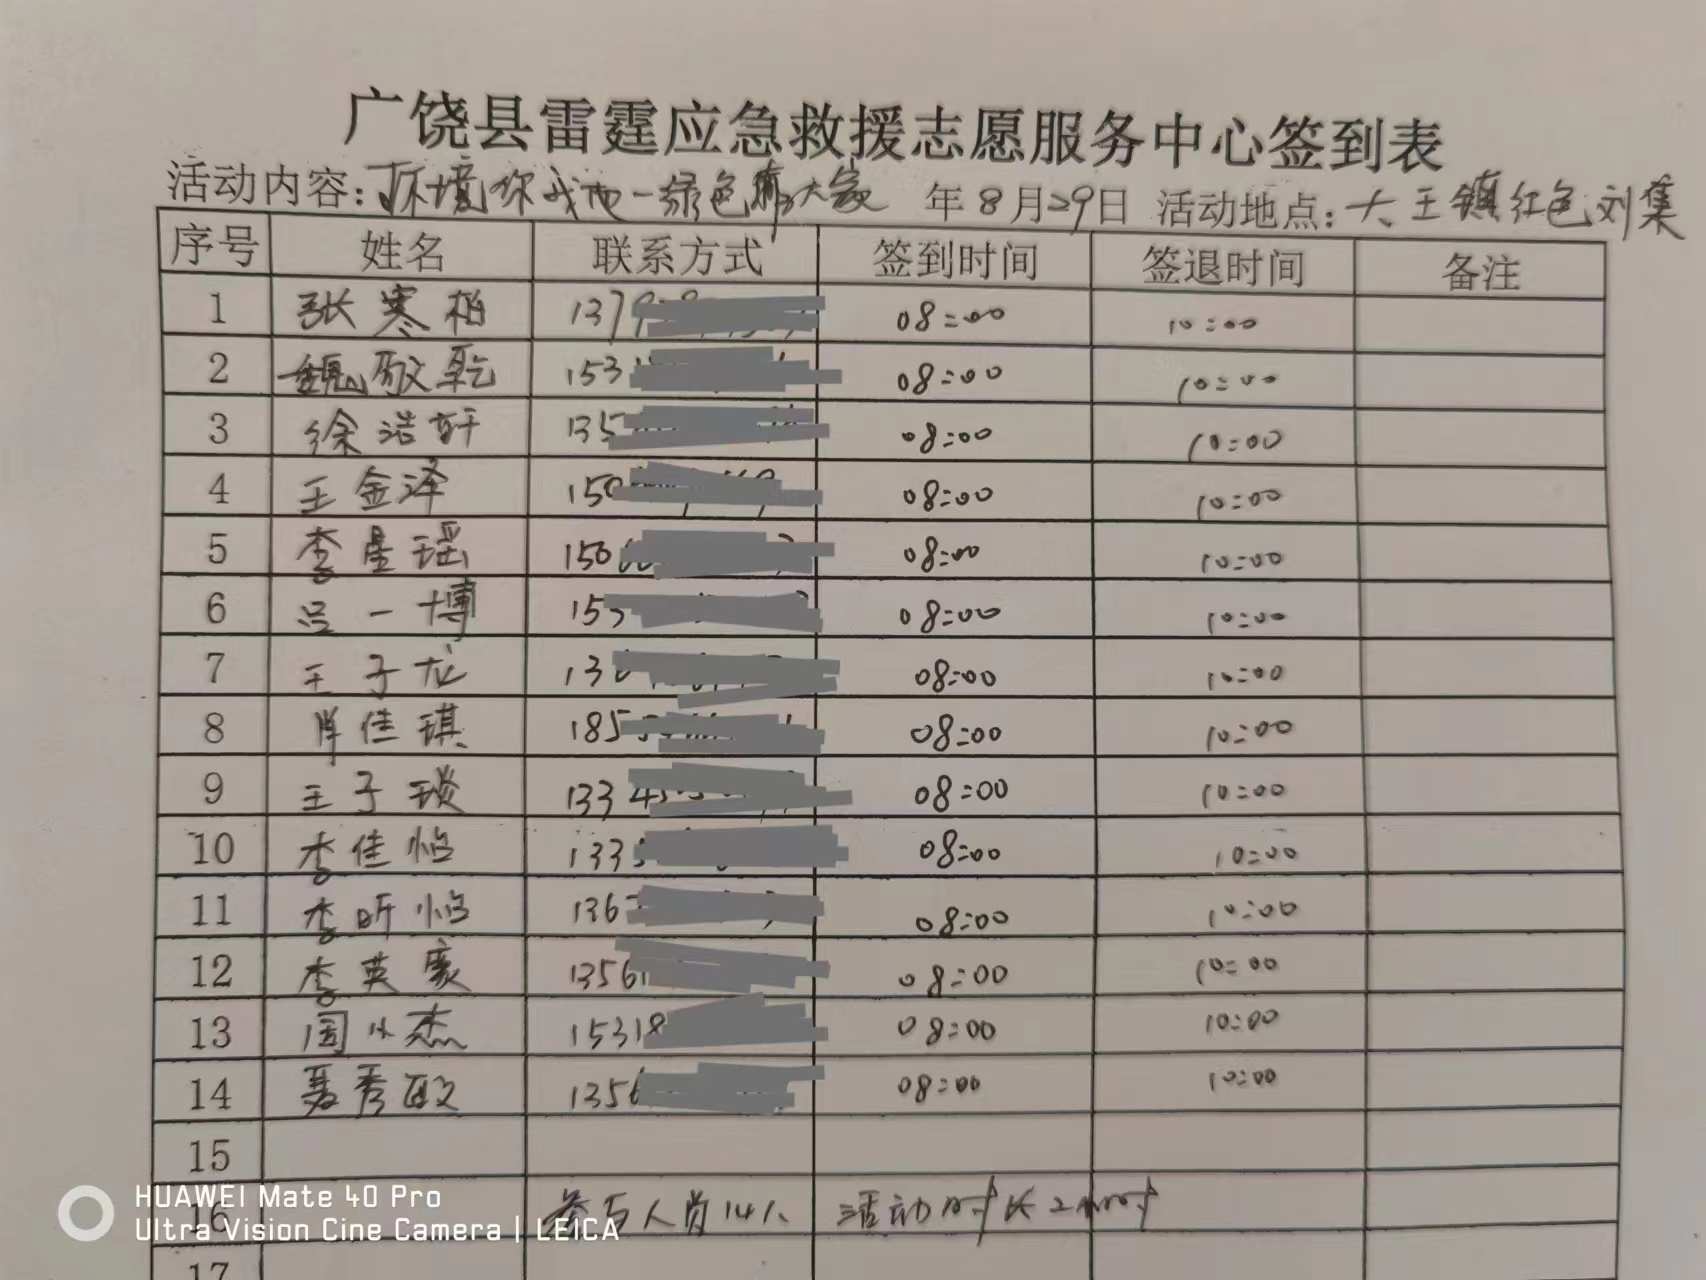 广饶县雷霆应急救援志愿服务中心签到表
活动内容:环境你我他一绿色靠大家 年8月29日 活动地点:大王镇红色刘集
序号 姓名 联系方式 签到时间 签退时间 备注
1 张寒柏 137 08:00 10:00
2 魏敬乾 153 08:00 10:00
3 徐浩轩 135 08:00 10:00
4 王金泽 150 08:00 10:00
5 李星瑶 150 08:00 10:00
6 吕一博 153 08:00 10:00
7 王子龙 13 08:00 10:00
8 肖佳琪 185 08:00 10:00
9 王子琰 133 08:00 10:00
10 李佳怡 133 08:00 10:00
11 李昕怡 136 08:00 10:00
12 李英豪 1356 08:00 10:00
13 周小杰 15318 08:00 10:00
14 聂秀敏 1356 08:00 10:00
15
16 参与人员14人 活动时长2小时
17
HUAWEI Mate 40 Pro
Ultra Vision Cine Camera | LEICA